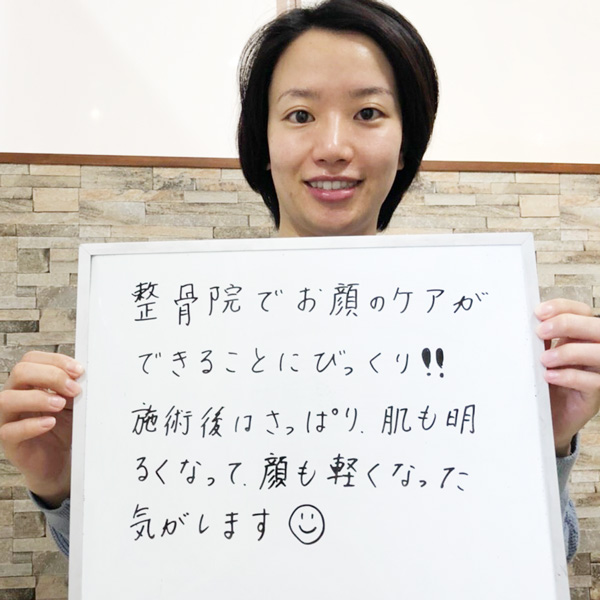 整骨院でお顔のケアが
できることにびっくり!!
施術後はさっぱり、肌も明
るくなって、顔も軽くなった
気がします☺